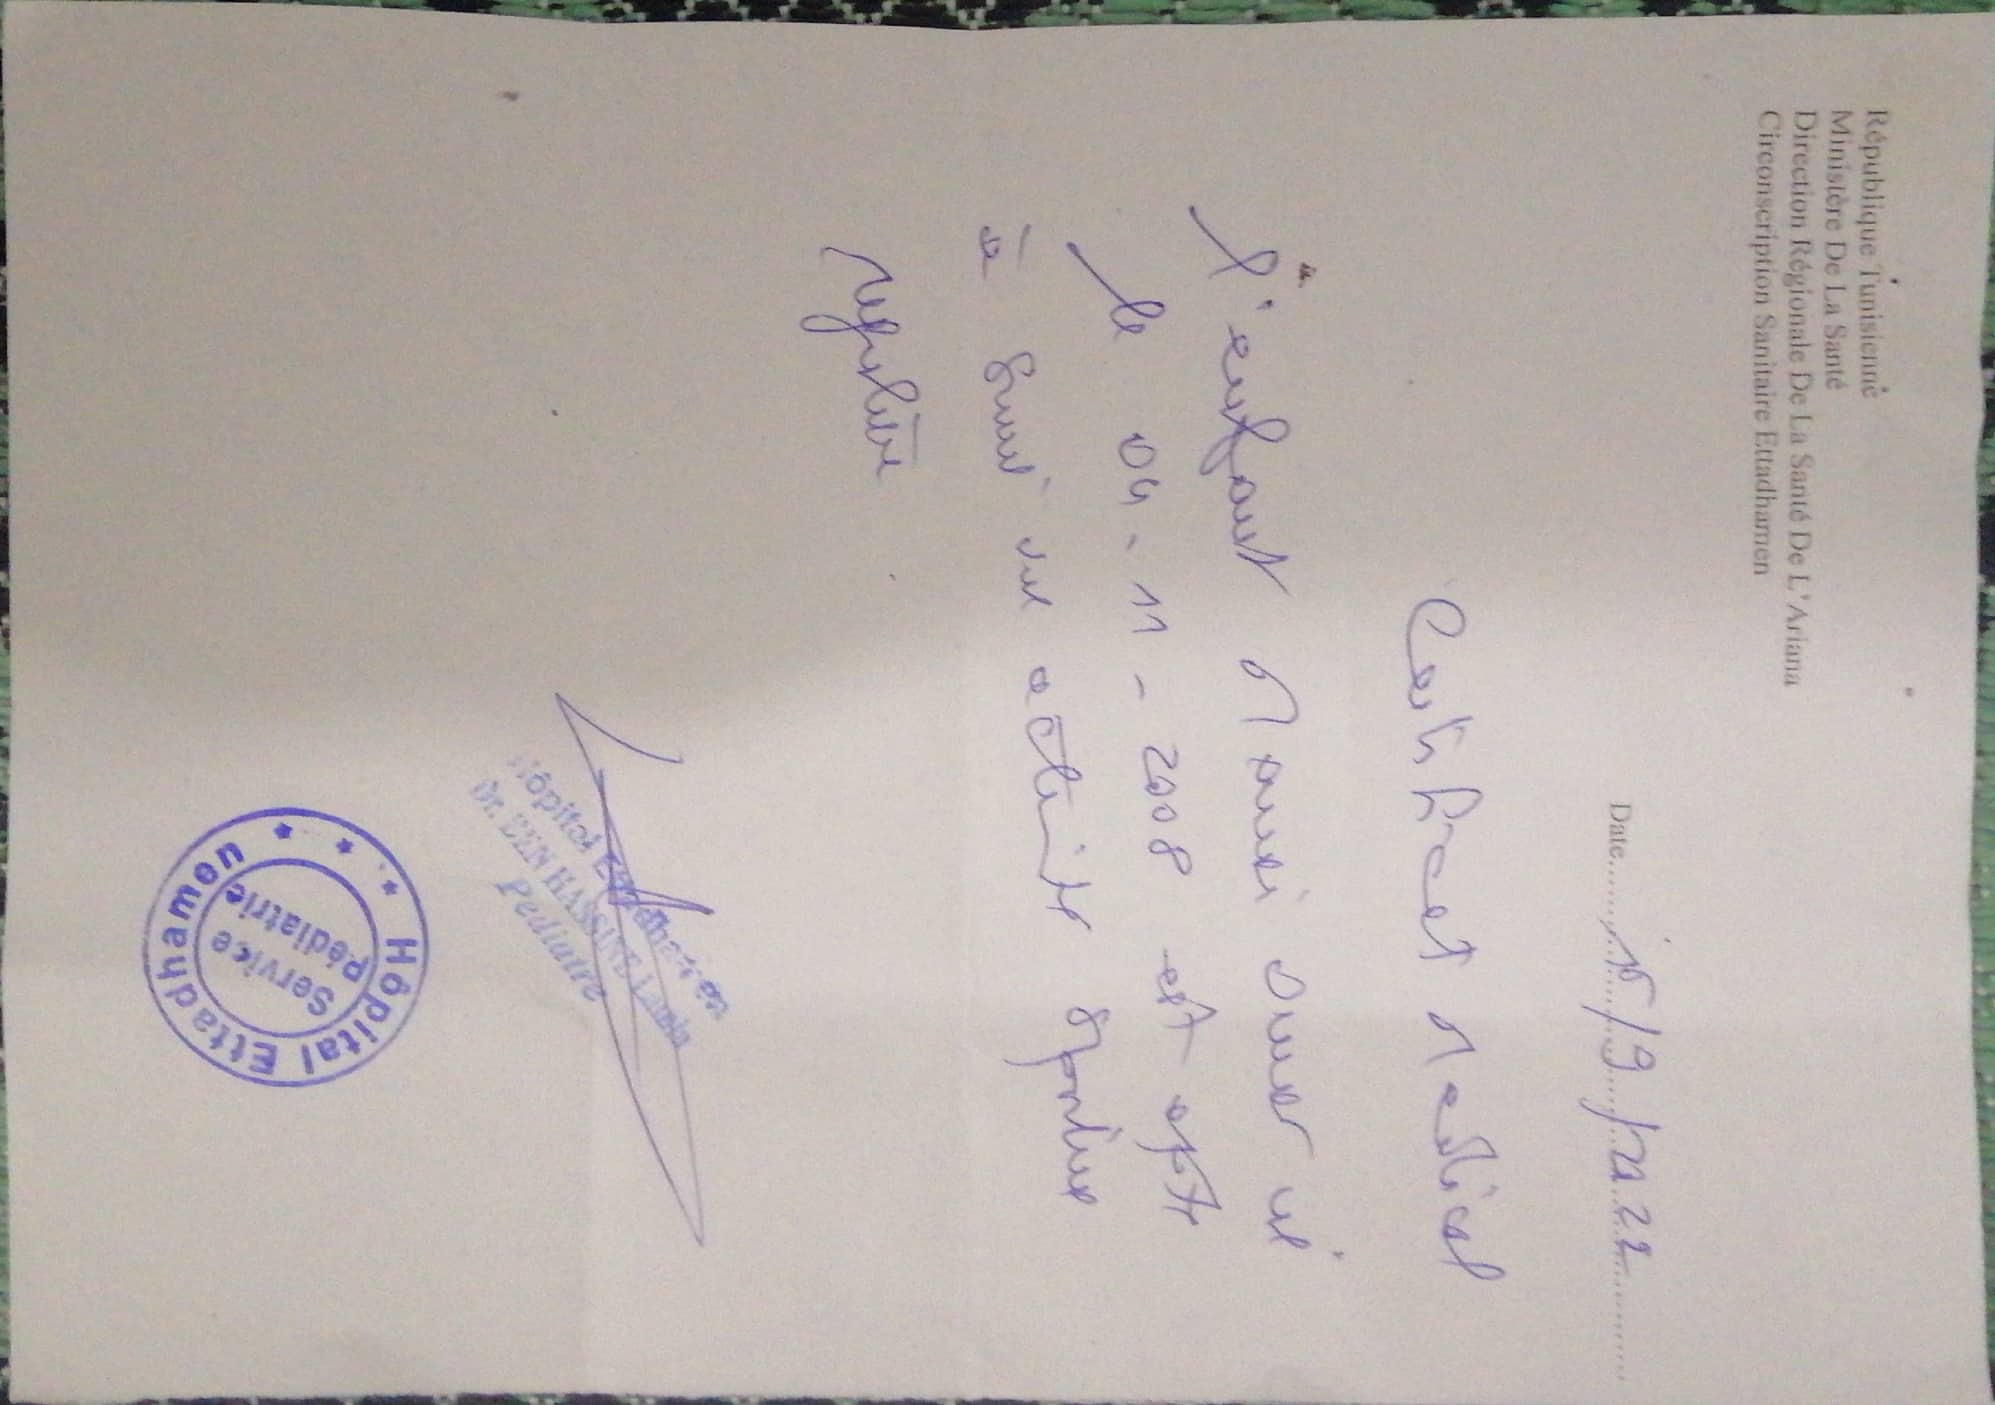 République Tunisienne
Ministère De La Santé
Direction Régionale De La Santé De L'Ariana
Circonscription Sanitaire Ettadhamen
Date 15/9/2022
Certificat Medical
l'enfant Omar né
le 04-11-2008 est apte
à suivre une activité sportive
régulière
Hôpital Ettadhamen
Dr. BEN HASSINE
Pédiatre
Hôpital Ettadhamen
Service
pédiatrie